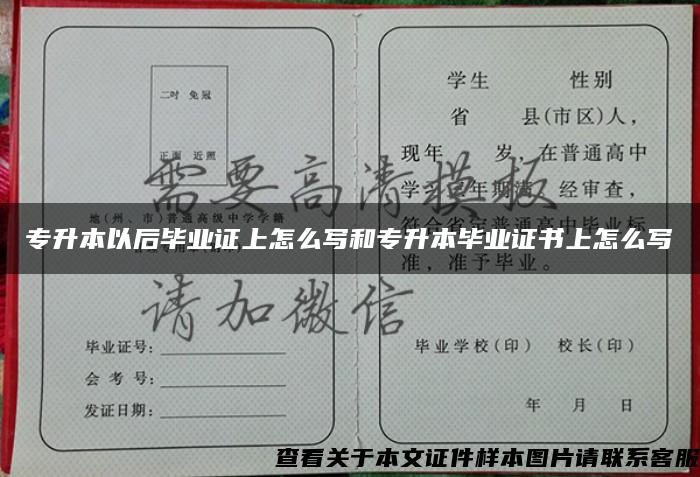 二吋 免冠
正面 近照
地(州、市)普通高级中学学籍
毕业证号:
会考号:
发证日期:
学生 性别
省 县(市区)人,
现年 岁,在普通高中
学习 年期满,经审查,
符合省定普通高中毕业标
准,准予毕业。
毕业学校(印) 校长(印)
年 月 日
需要高清模板
请加微信
专升本以后毕业证上怎么写和专升本毕业证书上怎么写
查看关于本文证件样本图片请联系客服